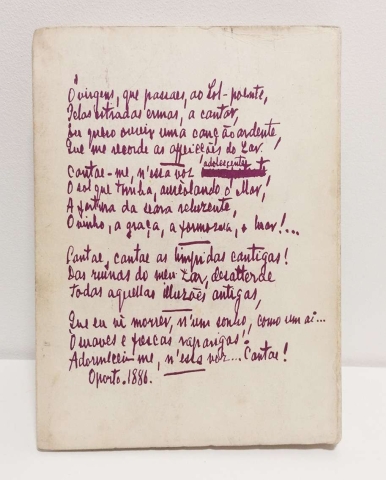 Ó virgens, que passaes, ao Sol-poente,
Pelas estradas ermas, a cantar,
Eu quero ouvir uma canção ardente
Que me recorde as affeições do Lar.
Cantae-me, n'essa voz adolescente
O sol que tomba, aureolando o Mar,
A fartura da seara reluzente,
O vinho, a graça, a formosura, o luar!...
Cantae, cantae as limpidas cantigas!
Das ruinas do meu Lar, desatterde
Todas aquellas illuzões antigas,
Que eu vi morrer, n'um sonho, como um ai...
O suaves e frescas raparigas!
Adormecei-me, n'essa voz... Cantae!
Oporto. 1886.